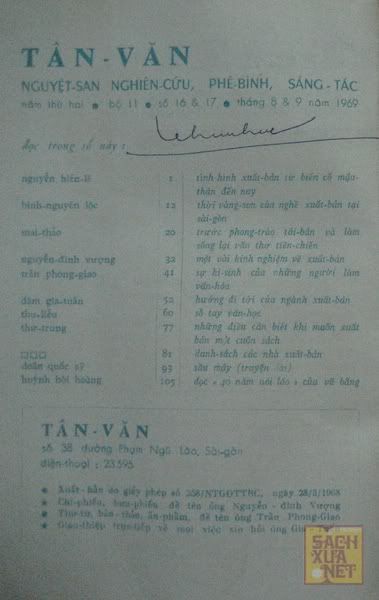 TÂN-VĂN
NGUYỆT-SAN NGHIÊN-CỨU, PHÊ-BÌNH, SÁNG-TÁC
năm thứ hai • bộ 11 • số 16 & 17 • tháng 8 & 9 năm 1969
đọc trong số này :
nguyễn hiến-lê 1 tình-hình xuất-bản từ biến cố mậu-
thân đến nay
bình-nguyên lộc 12 thời vàng-son của nghề xuất-bản tại
sài-gòn
mai-thảo 20 trước phong-trào tái-bản và làm
sống lại văn thơ tiền-chiến
nguyễn-đình vượng 32 một vài kinh nghiệm về xuất-bản
trần phong-giao 41 sự hi-sinh của những người làm
văn-hóa
đàm gia-tuấn 52 hướng đi tới của ngành xuất-bản
thu-liễu 60 sổ tay văn-học
thư-trung 77 những điều cần biết khi muốn xuất
bản một cuốn sách
□□□ 81 danh-sách các nhà xuất-bản
doãn quốc sỹ 93 sầu mây (truyện dài)
huỳnh bội hoàng 105 đọc « 40 năm nói láo » của vũ bằng
TÂN-VĂN
số 38 đường Phạm Ngũ Lão, Sài-gòn
điện-thoại : 23.595
★ Xuất-bản do giấy phép số 358/NTGĐTTBC, ngày 28/3/1968
★ Chi-phiếu, bưu-phiếu đề tên ông Nguyễn-đình Vượng
★ Thư-từ, bản-thảo, ấn-phẩm, đề tên ông Trần Phong-Giao
★ Giao-thiệp trực-tiếp về mọi việc xin hỏi ông Gia-Tuấn
SACH
XUA
.NET